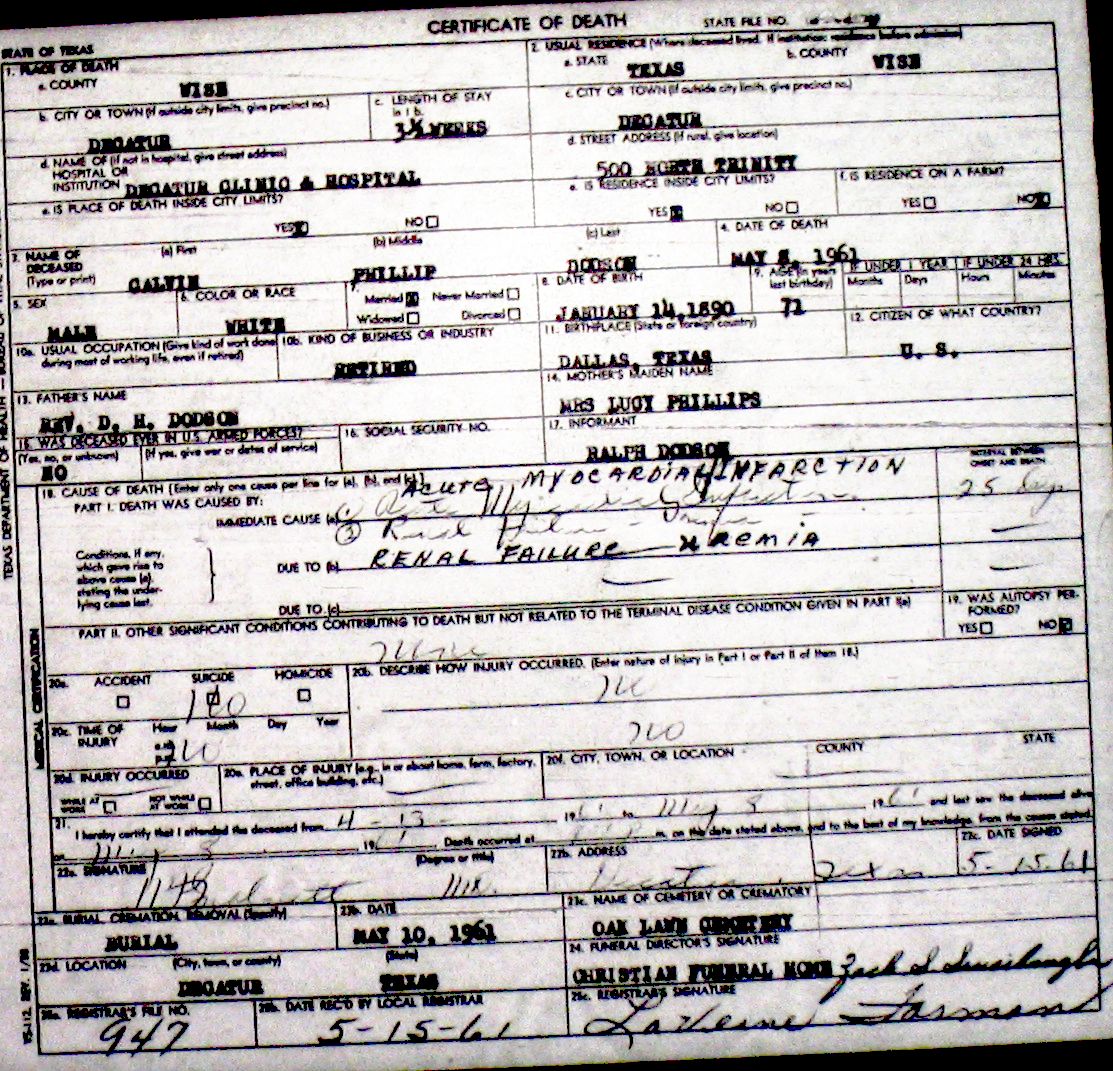 CERTIFICATE OF DEATH STATE FILE NO.
STATE OF TEXAS
1. PLACE OF DEATH
a. COUNTY
WISE
2. USUAL RESIDENCE (Where deceased lived. If institution: residence before admission)
a. STATE
TEXAS
b. COUNTY
WISE
b. CITY OR TOWN (If outside city limits, give precinct no.)
DECATUR
c. LENGTH OF STAY
in 1 b.
3½ WEEKS
c. CITY OR TOWN (If outside city limits, give precinct no.)
DECATUR
d. NAME OF (If not in hospital, give street address)
HOSPITAL OR
INSTITUTION DECATUR CLINIC & HOSPITAL
d. STREET ADDRESS (If rural, give location)
500 NORTH TRINITY
e. IS PLACE OF DEATH INSIDE CITY LIMITS?
YES NO
e. IS RESIDENCE INSIDE CITY LIMITS?
YES NO
f. IS RESIDENCE ON A FARM?
YES NO
3. NAME OF
DECEASED
(Type or print)
(a) First
CALVIN
(b) Middle
PHILLIP
(c) Last
DODSON
4. DATE OF DEATH
MAY 8, 1961
5. SEX
MALE
6. COLOR OR RACE
WHITE
7.
Married Never Married
Widowed Divorced
8. DATE OF BIRTH
JANUARY 14, 1890
9. AGE (In years
last birthday)
71
IF UNDER 1 YEAR
Months Days
IF UNDER 24 HRS.
Hours Minutes
10a. USUAL OCCUPATION (Give kind of work done
during most of working life, even if retired)
10b. KIND OF BUSINESS OR INDUSTRY
RETIRED
11. BIRTHPLACE (State or foreign country)
DALLAS, TEXAS
12. CITIZEN OF WHAT COUNTRY?
U. S.
13. FATHER'S NAME
REV. D. H. DODSON
14. MOTHER'S MAIDEN NAME
MRS LUCY PHILLIPS
15. WAS DECEASED EVER IN U.S. ARMED FORCES?
(Yes, no, or unknown) (If yes, give war or dates of service)
NO
16. SOCIAL SECURITY NO.
17. INFORMANT
RALPH DODSON
18. CAUSE OF DEATH [Enter only one cause per line for (a), (b), and (c).]
INTERVAL BETWEEN
ONSET AND DEATH
ACUTE MYOCARDIAL INFARCTION
PART I. DEATH WAS CAUSED BY:
IMMEDIATE CAUSE (a) Acute Myocardial Infarction
25 days
②
Conditions, if any,
which gave rise to
above cause (a),
stating the under-
lying cause last.
DUE TO (b) RENAL FAILURE UREMIA
DUE TO (c)
PART II. OTHER SIGNIFICANT CONDITIONS CONTRIBUTING TO DEATH BUT NOT RELATED TO THE TERMINAL DISEASE CONDITION GIVEN IN PART I(a)
None
19. WAS AUTOPSY PER-
FORMED?
YES NO
MEDICAL CERTIFICATION
20a. ACCIDENT SUICIDE HOMICIDE
No
20b. DESCRIBE HOW INJURY OCCURRED. (Enter nature of injury in Part I or Part II of Item 18.)
No
No
20c. TIME OF
INJURY
Hour Month Day Year
a.m.
p.m.
No
20d. INJURY OCCURRED
WHILE AT
WORK
NOT WHILE
AT WORK
20e. PLACE OF INJURY (e.g., in or about home, farm, factory,
street, office building, etc.)
20f. CITY, TOWN, OR LOCATION COUNTY STATE
21.
I hereby certify that I attended the deceased from 4-13- 1961 to May 8 1961 and last saw the deceased alive
on May 8 1961 Death occurred at m. on the date stated above, and to the best of my knowledge, from the causes stated.
22a. SIGNATURE (Degree or title)
M.D.
22b. ADDRESS
Decatur, Texas
22c. DATE SIGNED
5-15-61
23a. BURIAL, CREMATION, REMOVAL (Specify)
BURIAL
23b. DATE
MAY 10, 1961
23c. NAME OF CEMETERY OR CREMATORY
OAK LAWN CEMETERY
23d. LOCATION (City, town, or county) (State)
DECATUR TEXAS
24. FUNERAL DIRECTOR'S SIGNATURE
CHRISTIAN FUNERAL HOME
25a. REGISTRAR'S FILE NO.
947
25b. DATE REC'D BY LOCAL REGISTRAR
5-15-61
25c. REGISTRAR'S SIGNATURE
LaVerne
VS-112 REV. 1/58